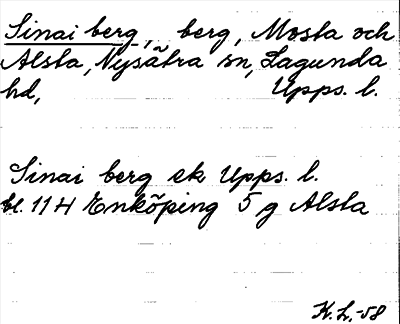 Sinai berg, berg, Mosta och
Alsta, Nysätra sn, Lagunda
hd, Upps. l.
Sinai berg ek Upps. l.
bl. 11H Enköping 5 g Alsta
K.L.-58